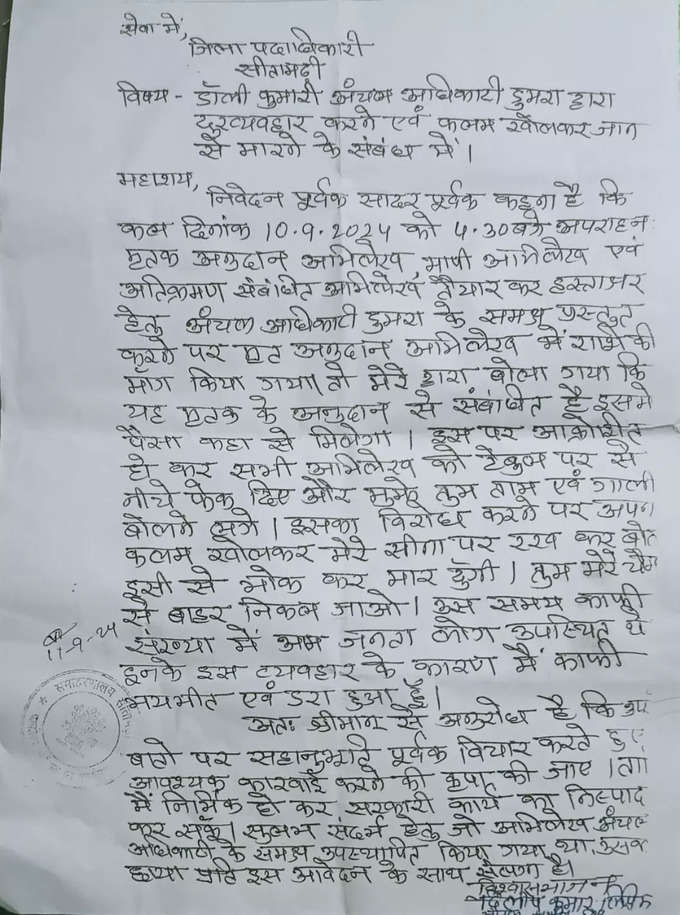 सेवा में,
जिला पदाधिकारी
सीतामढ़ी
विषय - डॉली कुमारी अंचल अधिकारी डुमरा द्वारा
दुरव्यवहार करने एवं कलम खोलकर जान
से मारने के संबंध में।
महाशय,
निवेदन पूर्वक सादर पूर्वक कहना है कि
कल दिनांक 10.9.2024 को 4.30 बजे अपराहन
मृतक अनुदान अभिलेख, मापी अभिलेख एवं
अतिक्रमण संबंधित अभिलेख तैयार कर हस्ताक्षर
हेतु अंचल अधिकारी डुमरा के समक्ष प्रस्तुत
करने पर मृत अनुदान अभिलेख में राशि की
माँग किया गया। तो मेरे द्वारा बोला गया कि
यह मृतक के अनुदान से संबंधित है इसमें
पैसा कहा से मिलेगा। इस पर आक्रोशित
हो कर सभी अभिलेख को टेबुल पर से
नीचे फेक दिए और मुझे तुम ताम एवं गाली
बोलने लगे। इसका विरोध करने पर अपना
कलम खोलकर मेरे सीना पर रख कर
इसी से भोक कर मार दुँगी। तुम मेरे
से बाहर निकल जाओ। उस समय काफी
संख्या में आम जनता लोग उपस्थित थे
इनके इस व्यवहार के कारण मैं काफी
भयभीत एवं डरा हुआ हूँ।
11-9-24
अतः श्रीमान से अनुरोध है कि
बातो पर सहानुभूति पूर्वक विचार करते हुए
आवश्यक कारवाई करने की कृपा की जाए।
मैं निर्भिक हो कर सरकारी कार्य का निष्पाद
कर सकूँ। सुलभ संदर्भ हेतु जो अभिलेख अंचल
अधिकारी के समक्ष उपस्थापित किया गया था, उसक
छाया प्रति इस आवेदन के साथ संलग्न है।
विश्वासभाजन
दिलीप कुमार लिपिक